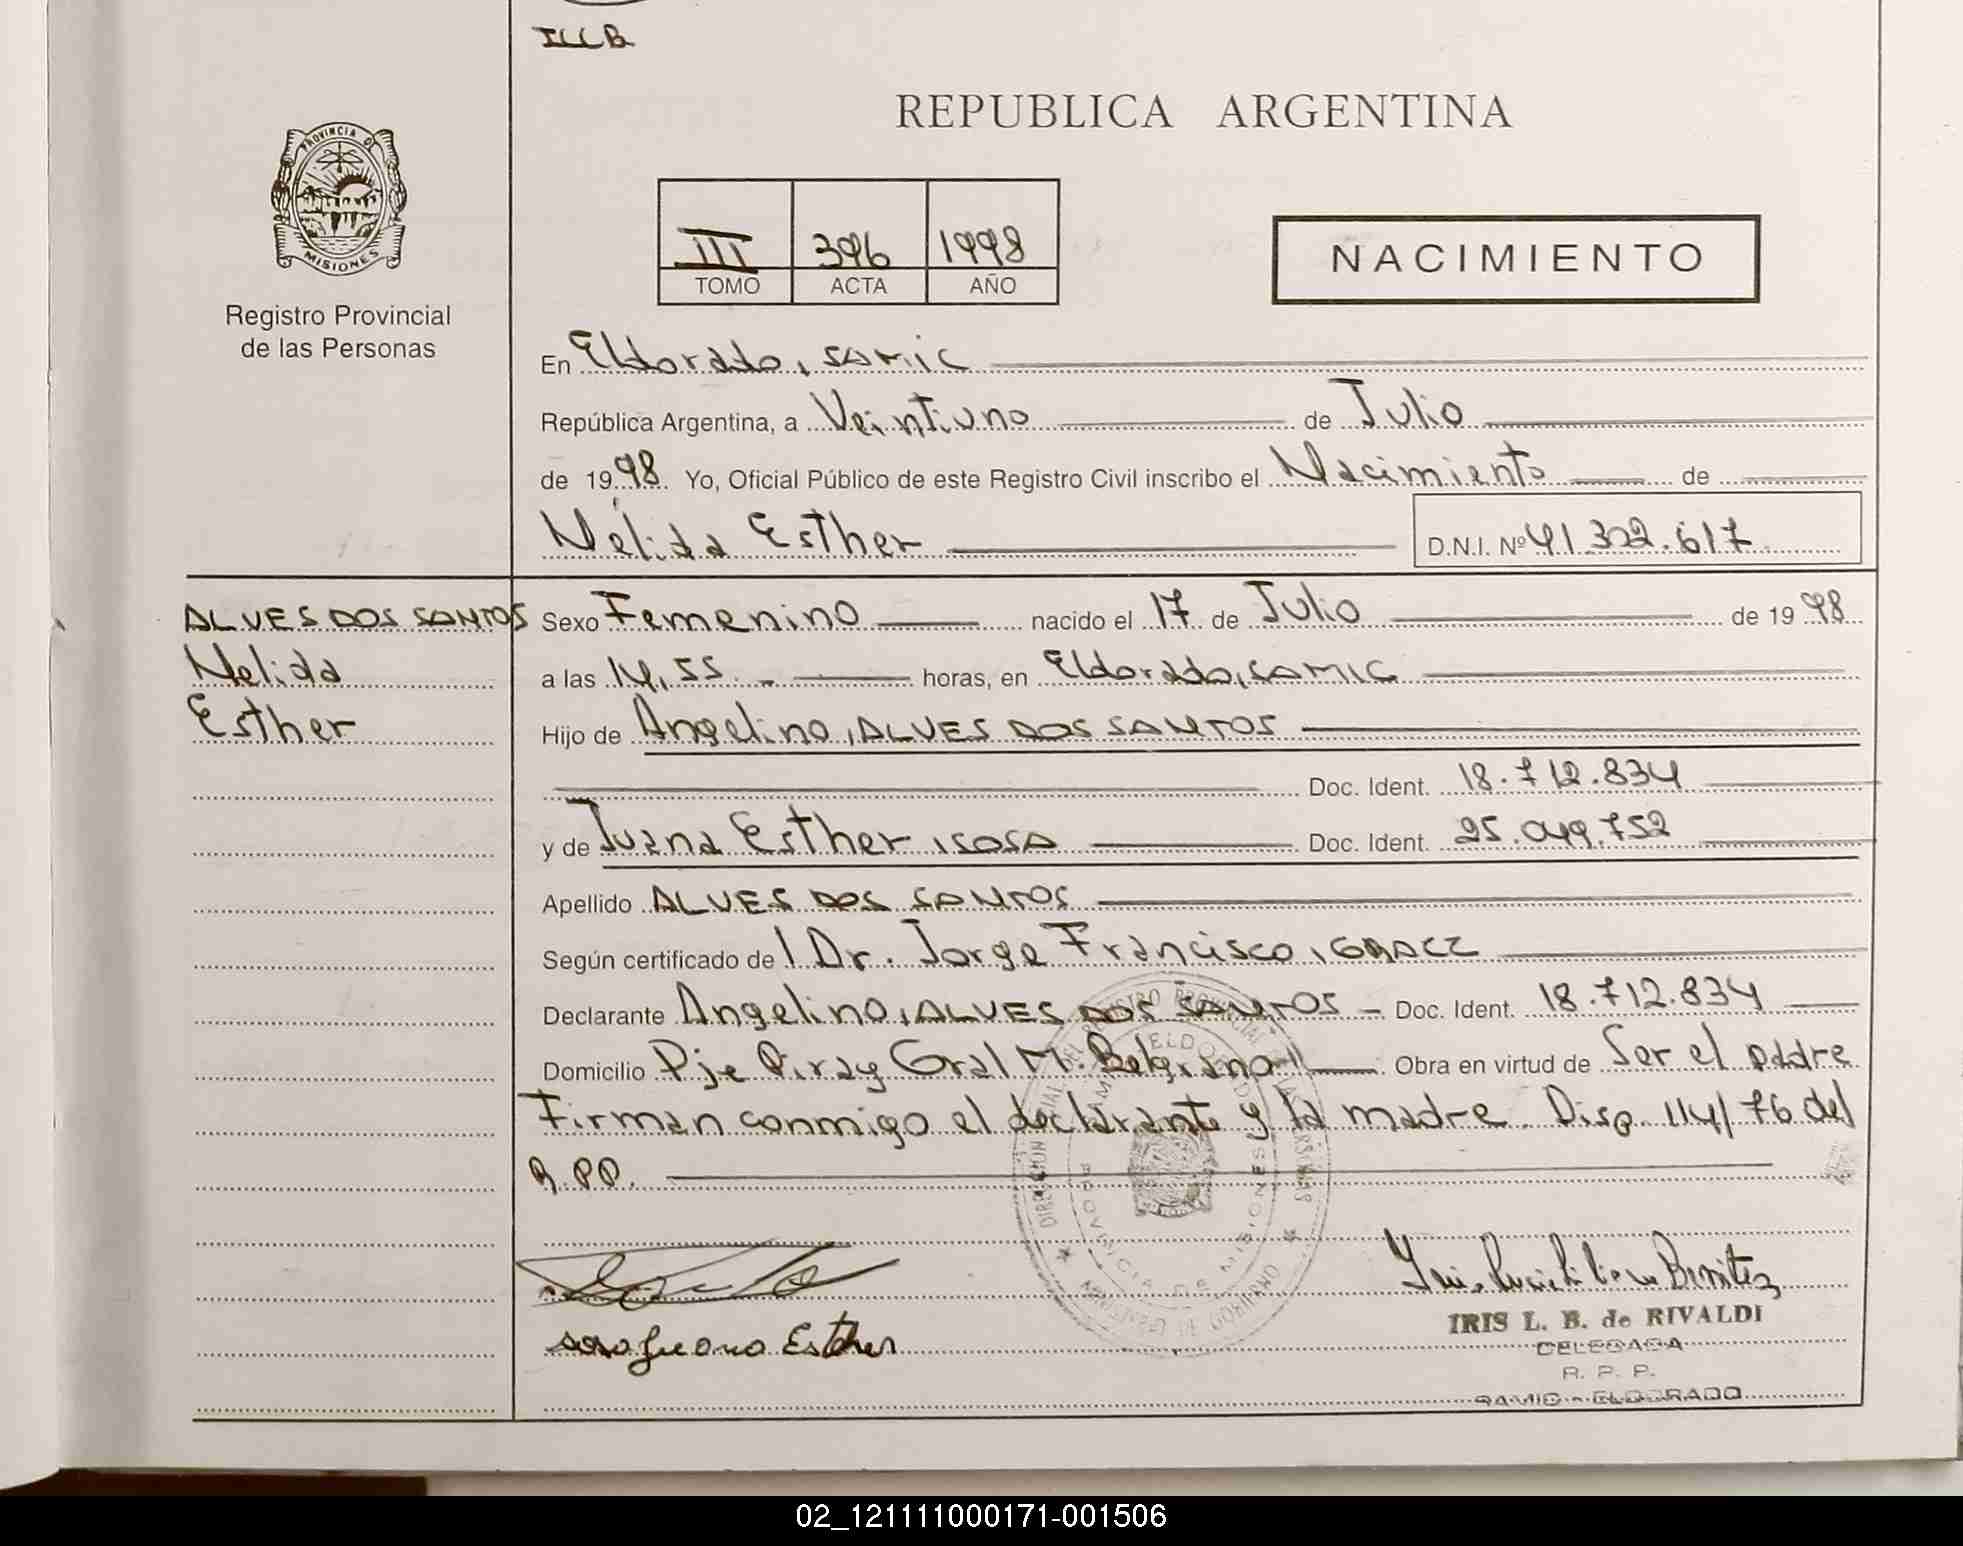 ILLB
REPUBLICA ARGENTINA
PROVINCIA DE
MISIONES
Registro Provincial
de las Personas
III 396 1998
TOMO ACTA AÑO
NACIMIENTO
En Eldorado, SAMIC
República Argentina, a Veintiuno de Julio
de 1998. Yo, Oficial Público de este Registro Civil inscribo el Nacimiento de
Nélida Esther D.N.I. Nº 41.322.617
ALVES DOS SANTOS
Nelida
Esther
Sexo Femenino nacido el 17 de Julio de 1998
a las 14,55 horas, en Eldorado, SAMIC
Hijo de Angelino, ALVES DOS SANTOS
Doc. Ident. 18.712.834
y de Juana Esther, SOSA Doc. Ident. 25.049.752
Apellido ALVES DOS SANTOS
Según certificado de Dr. Jorge Francisco,
Declarante Angelino, ALVES DOS SANTOS Doc. Ident. 18.712.834
Domicilio Pje Piray Gral M. Belgrano Obra en virtud de Ser el padre
Firman conmigo el declarante y la madre. Disp. 114/76 del
R.PP.
DIRECCION DEL REGISTRO PROVINCIAL DE LAS PERSONAS
MINISTERIO DE GOBIERNO
ELDORADO
PROVINCIA DE MISIONES
Sosa Juana Esther
Benitez
IRIS L. B. de RIVALDI
DELEGADA
R. P. P.
SAMIC - ELDORADO
02_121111000171-001506